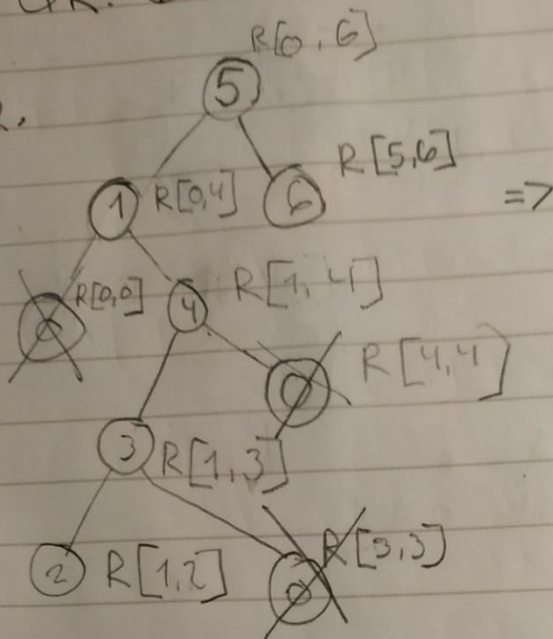 R[0,6]
5
R[5,6]
1 R[0,4] 6
=>
R[0,0] 4 R[1,4]
0
0 R[4,4]
3 R[1,3]
2 R[1,2] 0 R[3,3]